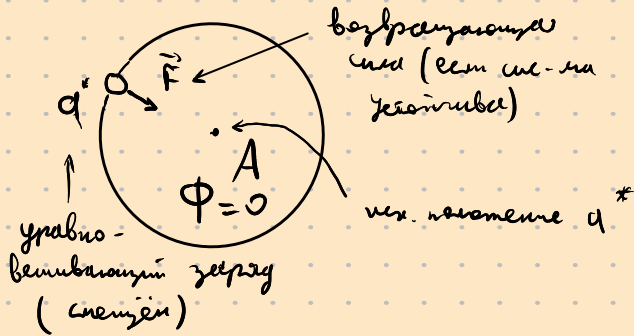 возвращающая
сила (если сис-ма
устойчива)
F
q*
A
Φ = 0
исх. положение q*
уравно-
вешивающий заряд
(смещён)